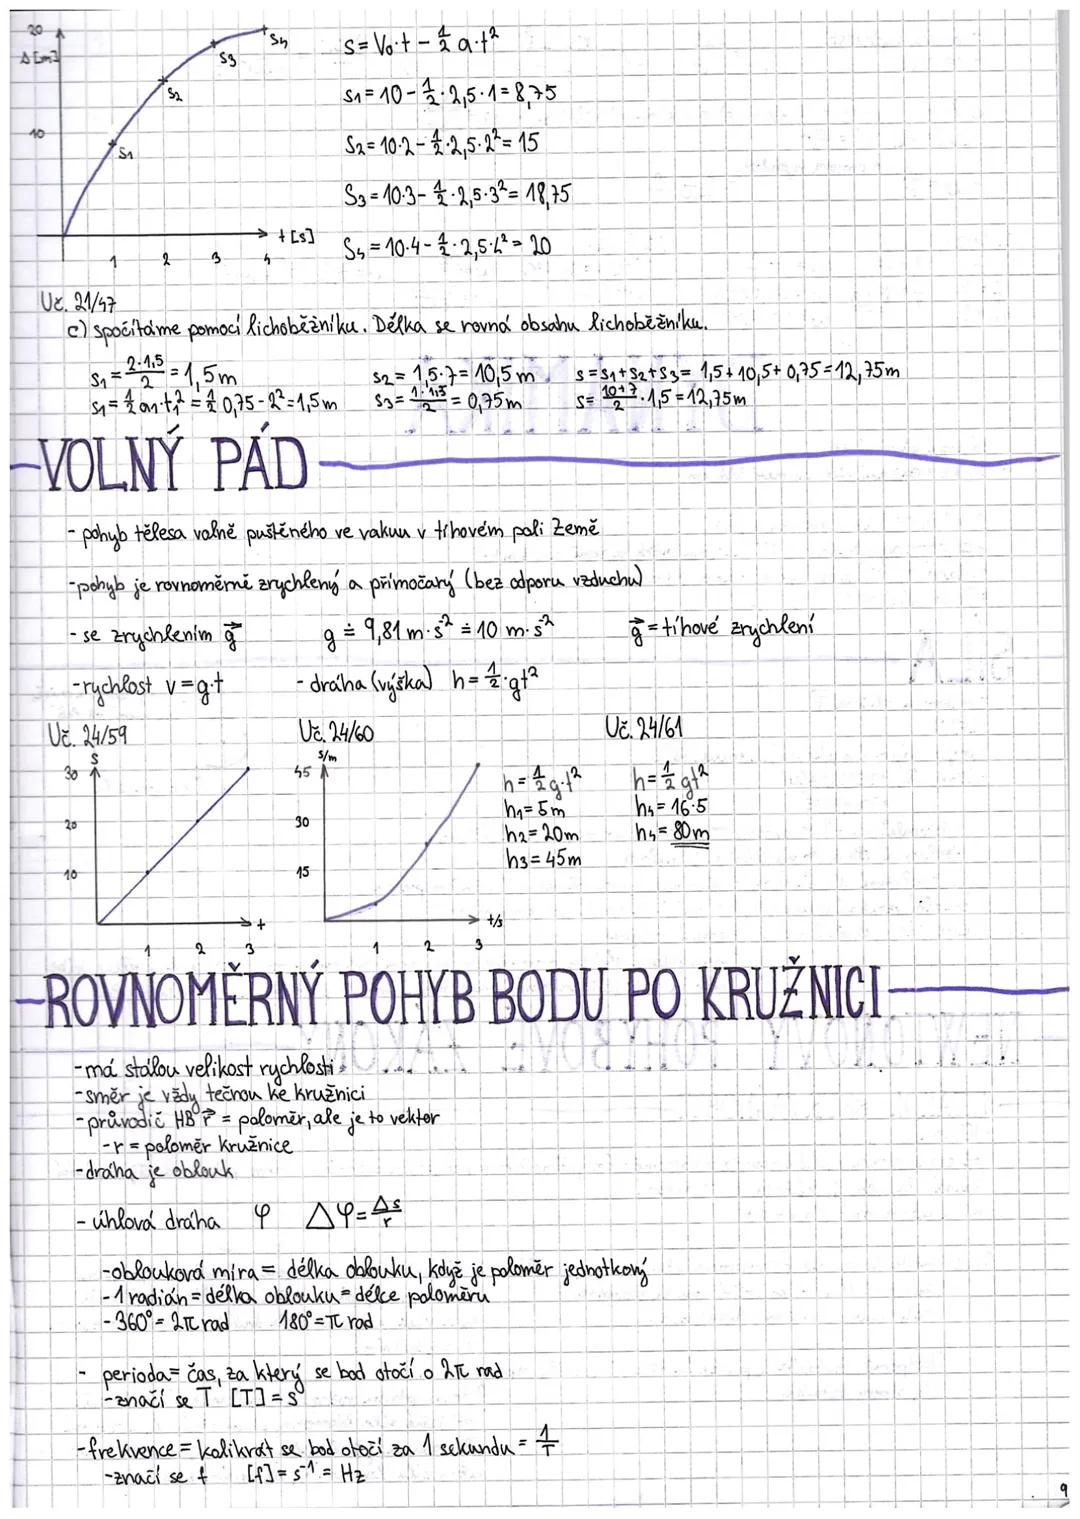 20
s [m]
10
S1
S2
S3
S4
t [s]
1 2 3 4
s = V₀·t − ½ a·t²
S1 = 10 − ½ · 2,5 · 1 = 8,75
S2 = 10·2 − ½ · 2,5 · 2² = 15
S3 = 10·3 − ½ · 2,5 · 3² = 18,75
S4 = 10·4 − ½ · 2,5 · 4² = 20
Uč. 21/47
c) spočítáme pomocí lichoběžníku. Délka se rovná obsahu lichoběžníku.
S1 = 2·1,5/2 = 1,5 m S2 = 1,5·7 = 10,5 m S = S1 + S2 + S3 = 1,5 + 10,5 + 0,75 = 12,75 m
S1 = ½ a1·t1² = ½ 0,75 · 2² = 1,5 m S3 = 1·1,5/2 = 0,75 m S = 10+7/2 · 1,5 = 12,75 m
VOLNÝ PÁD
- pohyb tělesa volně puštěného ve vakuu v tíhovém poli Země
- pohyb je rovnoměrně zrychlený a přímočarý (bez odporu vzduchu)
- se zrychlením g⃗ g ≐ 9,81 m·s⁻² ≐ 10 m·s⁻² g⃗ = tíhové zrychlení
- rychlost v = g·t - dráha (výška) h = ½·gt²
Uč. 24/59 Uč. 24/60 Uč. 24/61
s
30
20
10
t
1 2 3
s/m
45
30
15
t/s
1 2 3
h = ½ g·t²
h1 = 5 m
h2 = 20 m
h3 = 45 m
h = ½ gt²
h4 = 16·5
h4 = 80 m
ROVNOMĚRNÝ POHYB BODU PO KRUŽNICI
- má stálou velikost rychlosti
- směr je vždy tečnou ke kružnici
- průvodič HB r⃗ = poloměr, ale je to vektor
- r = poloměr kružnice
- dráha je oblouk
- úhlová dráha φ Δφ = Δs/r
- oblouková míra = délka oblouku, když je poloměr jednotkový
- 1 radián = délka oblouku = délce poloměru
- 360° = 2π rad 180° = π rad
- perioda = čas, za který se bod otočí o 2π rad
- značí se T [T] = s
- frekvence = kolikrát se bod otočí za 1 sekundu = 1/T
- značí se f [f] = s⁻¹ = Hz
9